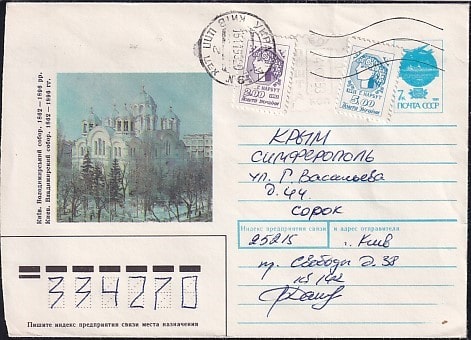 Київ. Володимирський собор. 1862—1896 рр.
Киев. Владимирский собор. 1862—1896 гг.
УКРАЇНА
КИЇВ
Г. НАРБУТ
2.00
Пошта України
Г. НАРБУТ
5.00
Пошта України
7к
ПОЧТА СССР
КРЫМ
СИМФЕРОПОЛЬ
ул. Г. Васильева
д. 44
СОРОК
Индекс предприятия связи и адрес отправителя
25215 г. Киев
пр. Свободы д. 38
кв 142
334270
Пишите индекс предприятия связи места назначения